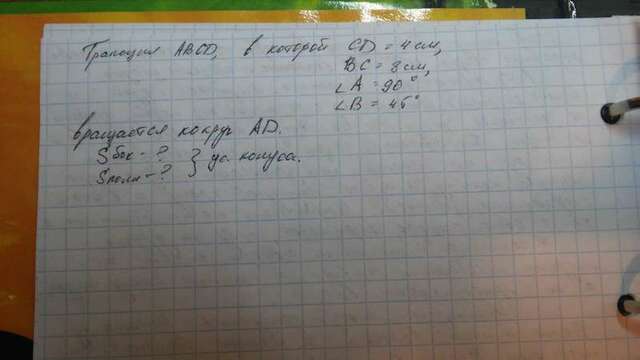 Трапеция ABCD, в которой CD = 4 см,
BC = 8 см,
∠A = 90°
∠B = 45°
вращается вокруг AD.
Sбок - ?
Sполн - ? } ус. конуса.